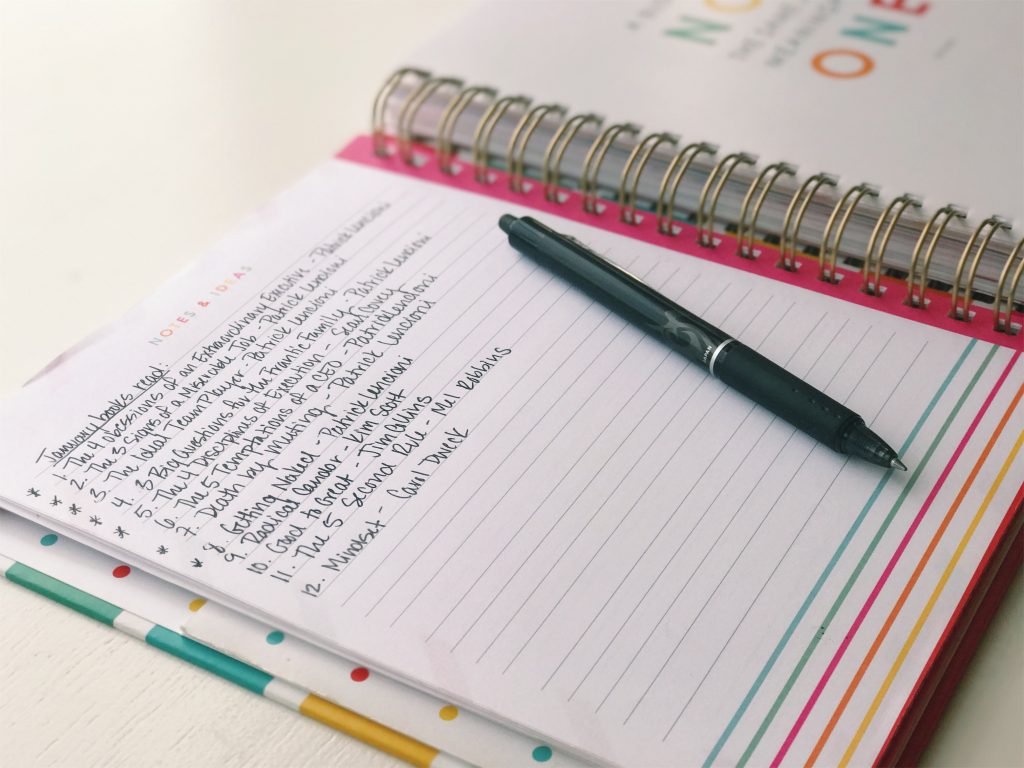 NO
ONE
NOTES & IDEAS
January books read:
* 1. The 4 obsessions of an Extraordinary Executive - Patrick Lencioni
* 2. The 5 signs of a Miserable Job - Patrick Lencioni
* 3. The ideal Team Player - Patrick Lencioni
* 4. 3 Big Questions for the Frantic Family - Patrick Lencioni
* 5. The 4 Disciplines of Execution - Sean Covey
6. The 5 Temptations of a CEO - Patrick Lencioni
* 7. Death by meeting - Patrick Lencioni
* 8. Getting Naked - Patrick Lencioni
9. Radical Candor - Kim Scott
10. Good to Great - Jim Collins
11. The 5 Second Rule - Mel Robbins
12. Mindset - Carol Dweck
JAPAN